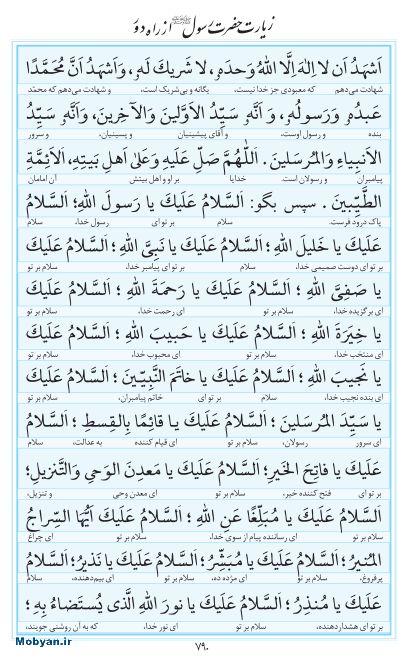 زیارت حضرت رسول ﷺ از راه دور
اَشهَدُ اَن لا اِلٰهَ اِلَّا اللهُ وَحدَهٗ، لا شَریكَ لَهٗ، وَاَشهَدُ اَنَّ مُحَمَّدًا
شهادت می‌دهم که معبودی جز خدا نیست، یگانه و بی‌شریک است، و شهادت می‌دهم که محمّد
عَبدُهٗ وَرَسولُهٗ، وَ اَنَّهٗ سَیِّدُ الاَوَّلینَ وَالآخِرینَ، وَاَنَّهٗ سَیِّدُ
بنده و رسول اوست، و آقای پیشینیان و پسینیان، و سرور
الاَنبِیاءِ وَالمُرسَلینَ. اَللّٰهُمَّ صَلِّ عَلَیهِ وَعَلیٰ اَهلِ بَیتِهِ، الاَئِمَّةِ
پیامبران و رسولان است. خدایا بر او و اهل بیتش آن امامان
الطَّیِّبینَ. سپس بگو: اَلسَّلامُ عَلَیكَ یا رَسولَ اللهِ؛ اَلسَّلامُ
پاک درود فرست. سلام بر تو ای رسول خدا، سلام
عَلَیكَ یا خَلیلَ اللهِ؛ اَلسَّلامُ عَلَیكَ یا نَبِیَّ اللهِ؛ اَلسَّلامُ عَلَیكَ
بر تو ای دوست صمیمی خدا، سلام بر تو ای پیامبر خدا، سلام بر تو
یا صَفِیَّ اللهِ؛ اَلسَّلامُ عَلَیكَ یا رَحمَةَ اللهِ؛ اَلسَّلامُ عَلَیكَ
ای برگزیده خدا، سلام بر تو ای رحمت خدا، سلام بر تو
یا خِیَرَةَ اللهِ؛ اَلسَّلامُ عَلَیكَ یا حَبیبَ اللهِ؛ اَلسَّلامُ عَلَیكَ
ای منتخب خدا، سلام بر تو ای محبوب خدا، سلام بر تو
یا نَجیبَ اللهِ؛ اَلسَّلامُ عَلَیكَ یا خاتَمَ النَّبِیّینَ؛ اَلسَّلامُ عَلَیكَ
ای بنده نجیب خدا، سلام بر تو ای خاتم پیامبران، سلام بر تو
یا سَیِّدَ المُرسَلینَ؛ اَلسَّلامُ عَلَیكَ یا قائِمًا بِالقِسطِ؛ اَلسَّلامُ
ای سرور رسولان، سلام بر تو ای قیام کننده به عدالت، سلام
عَلَیكَ یا فاتِحَ الخَیرِ؛ اَلسَّلامُ عَلَیكَ یا مَعدِنَ الوَحیِ وَالتَّنزیلِ؛
بر تو ای فتح کننده خیر، سلام بر تو ای معدن وحی و تنزیل،
اَلسَّلامُ عَلَیكَ یا مُبَلِّغًا عَنِ اللهِ؛ اَلسَّلامُ عَلَیكَ اَیُّهَا السِّراجُ
سلام بر تو ای رساننده پیام از سوی خدا، سلام بر تو ای چراغ
المُنیرُ؛ اَلسَّلامُ عَلَیكَ یا مُبَشِّرُ؛ اَلسَّلامُ عَلَیكَ یا نَذیرُ؛ اَلسَّلامُ
پرفروغ، سلام بر تو ای مژده ده، سلام بر تو ای بیم‌دهنده، سلام
عَلَیكَ یا مُنذِرُ؛ اَلسَّلامُ عَلَیكَ یا نورَ اللهِ الَّذی یُستَضاءُ بِهٖ؛
بر تو ای هشداردهنده، سلام بر تو ای نور خدا، که به آن روشنی جویند،
۷۹۰
Mobyan.ir